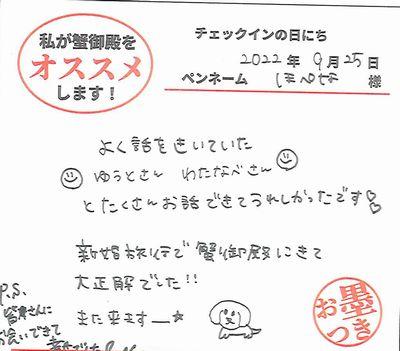 私が蟹御殿を
オススメ
します！
チェックインの日にち
2022年9月25日
ペンネーム ほぺな 様
よく話をきいていた
ゆうとさん わたなべさん
とたくさんお話できてうれしかったです♡♡
新婚旅行で蟹御殿にきて
大正解でした!!
また来ますー☆
P.S.
皆実さんに
お会いできて
お墨つき